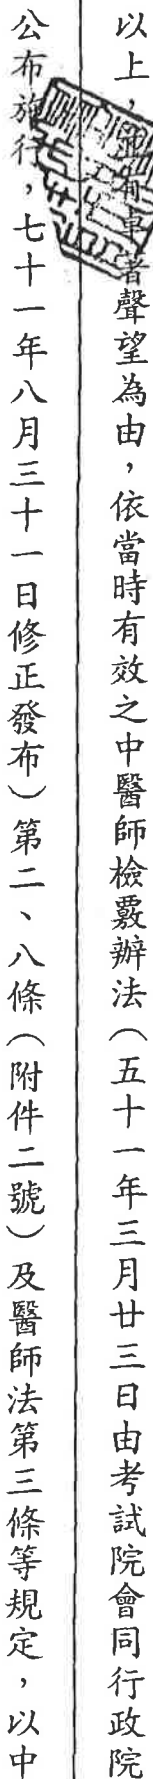 以上，並有卓著聲望為由，依當時有效之中醫師檢覈辦法（五十一年三月廿三日由考試院會同行政院
公布施行，七十一年八月三十一日修正發布）第二、八條（附件二號）及醫師法第三條等規定，以中